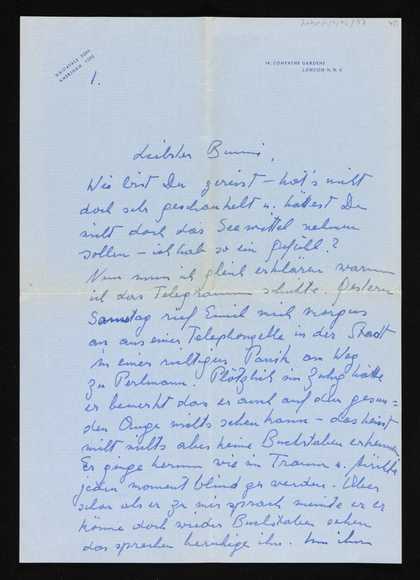 1.
14, COMPAYNE GARDENS
LONDON N.W.6
Liebster Bumi,
Wie bist Du gereist – hat's nicht
doch sehr geschaukelt u. hättest Du
nicht doch das Seemittel nehmen
sollen – ich hab so ein Gefühl?
Nun muss ich gleich erklären warum
ich das Telegramm schickte. Gestern
Samstag rief Emil mich morgens
an aus einer Telephonzelle in der Stadt
in einer richtigen Panik am Weg
zu Perlmann. Plötzlich im Zuhg hatte
er bemerkt das er auch auf den gesun-
den Auge nichts sehen kann – das heisst
nicht nichts aber keine Buchstaben erkennen.
Er ginge herum wie im Traum u. fürchte
jeden moment blind zu werden. Aber
schon als er zu mir sprach meinte er er
könne doch wieder Buchstaben sehen
das sprechen beruhige ihn. Um ihm